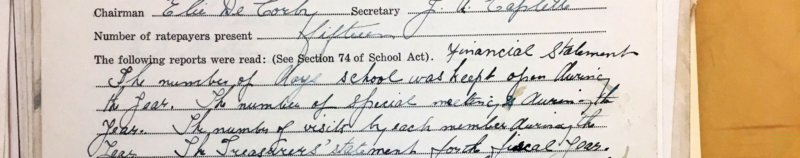 Chairman Elie De Corby Secretary J. A. Caplette
Number of ratepayers present fifteen
The following reports were read: (See Section 74 of School Act). Financial Statement
The number of days school was kept open during
the Year. The number of special meetings during the
Year. The number of visits by each member during the
Year. The Treasurers' statement for the fiscal Year.